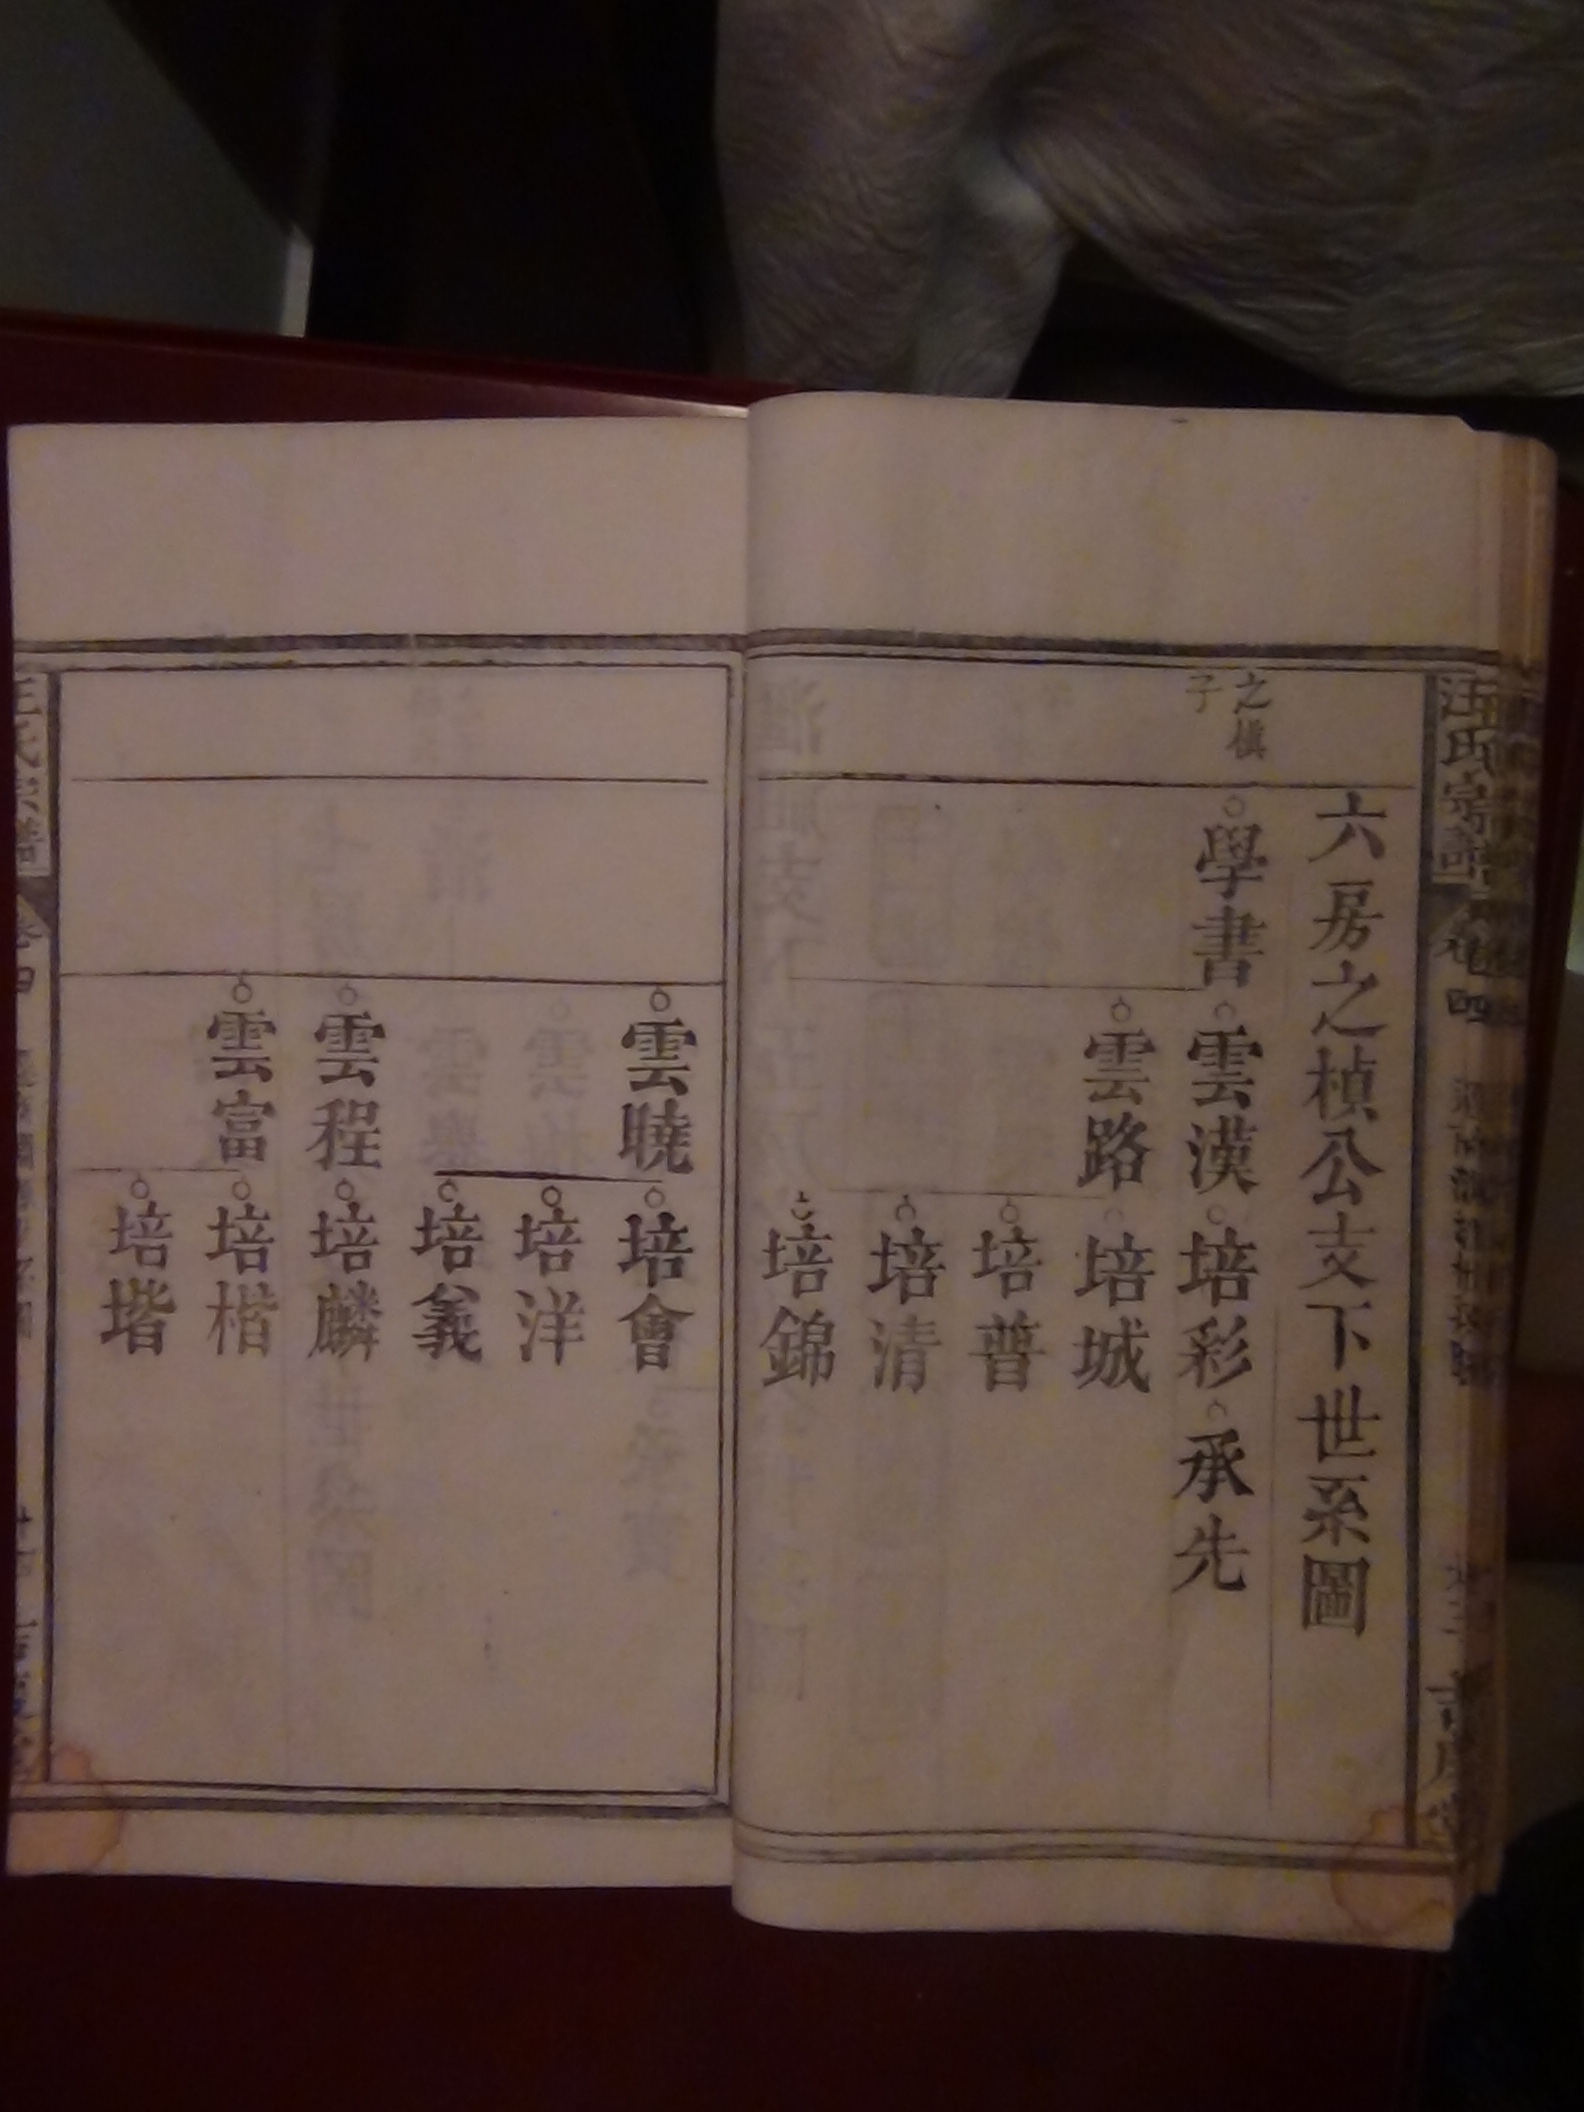 汪氏宗譜
卷四
六房之楨公支下世系圖
之楨
子
學書
雲漢
培彩
承先
雲路
培城
培普
培清
培錦
雲曉
培會
培洋
培義
雲程
培麟
雲富
培楷
培堦